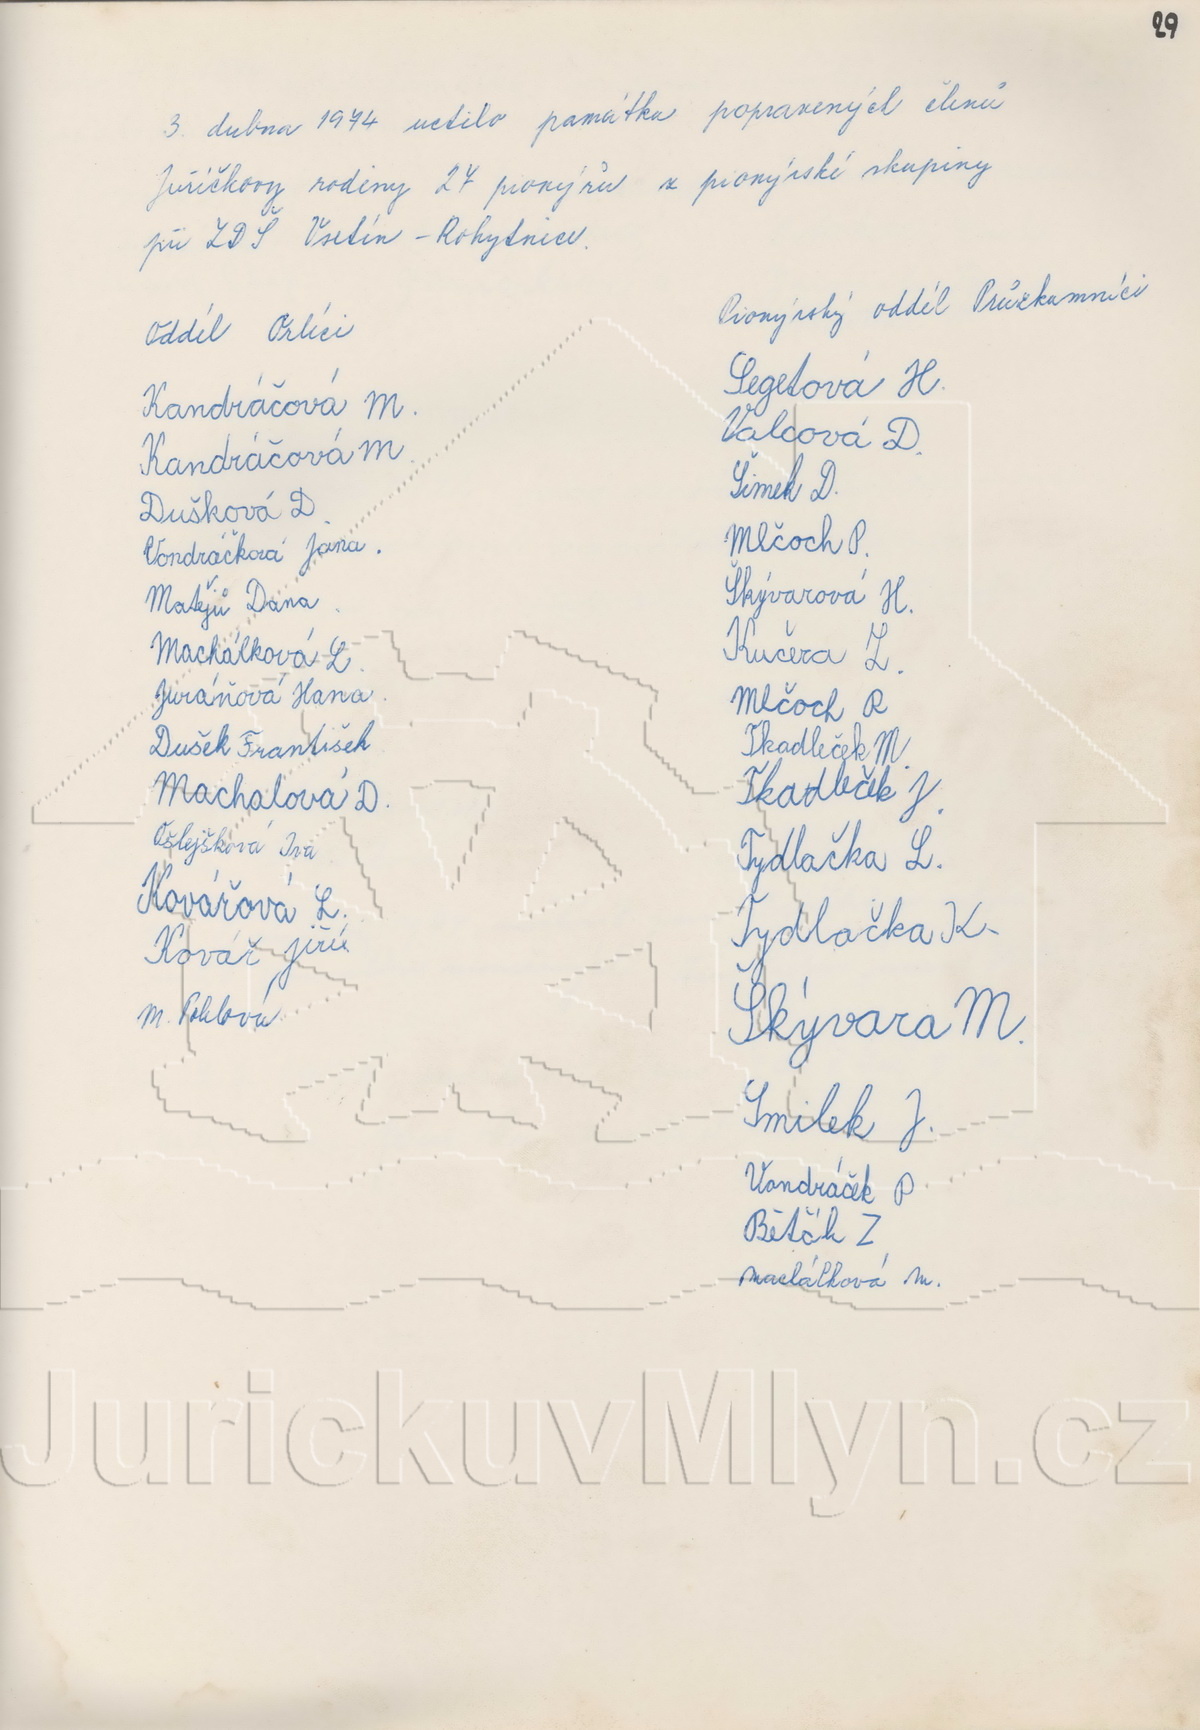 29
3. dubna 1974 uctilo památku popravených členů
Juříčkovy rodiny 27 pionýrů z pionýrské skupiny
při ZDŠ Vsetín - Rokytnice.
Oddíl Orlíci
Kandráčová M.
Kandráčová M.
Dušková D.
Vondráčková Jana.
Matějů Dana.
Machálková L.
Juráňová Hana.
Dušek František
Machalová D.
Ošlejšková Iva
Kovářová L.
Kovář Jiří
M. Pohlová
Pionýrský oddíl Průzkumníci
Segetová H.
Valcová D.
Šimek D.
Mlčoch P.
Škývarová H.
Kučera Z.
Mlčoch R
Tkadleček M.
Tkadleček J.
Tydlačka L.
Tydlačka K.
Škývara M.
Smilek J.
Vondráček P
Běťák Z
Machálková M.
JurickuvMlyn.cz